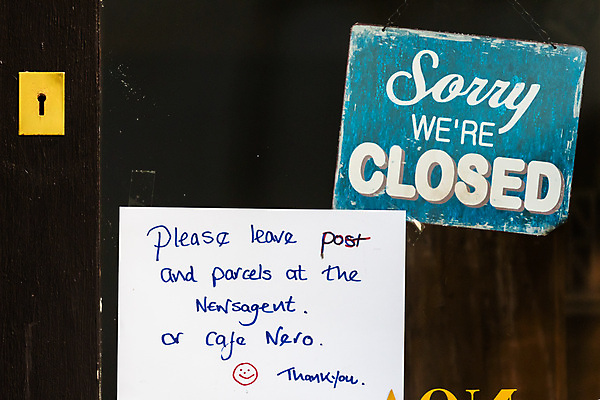 Sorry
WE'RE
CLOSED
Please leave post
and parcels at the
Newsagent.
or Cafe Nero.
Thankyou.